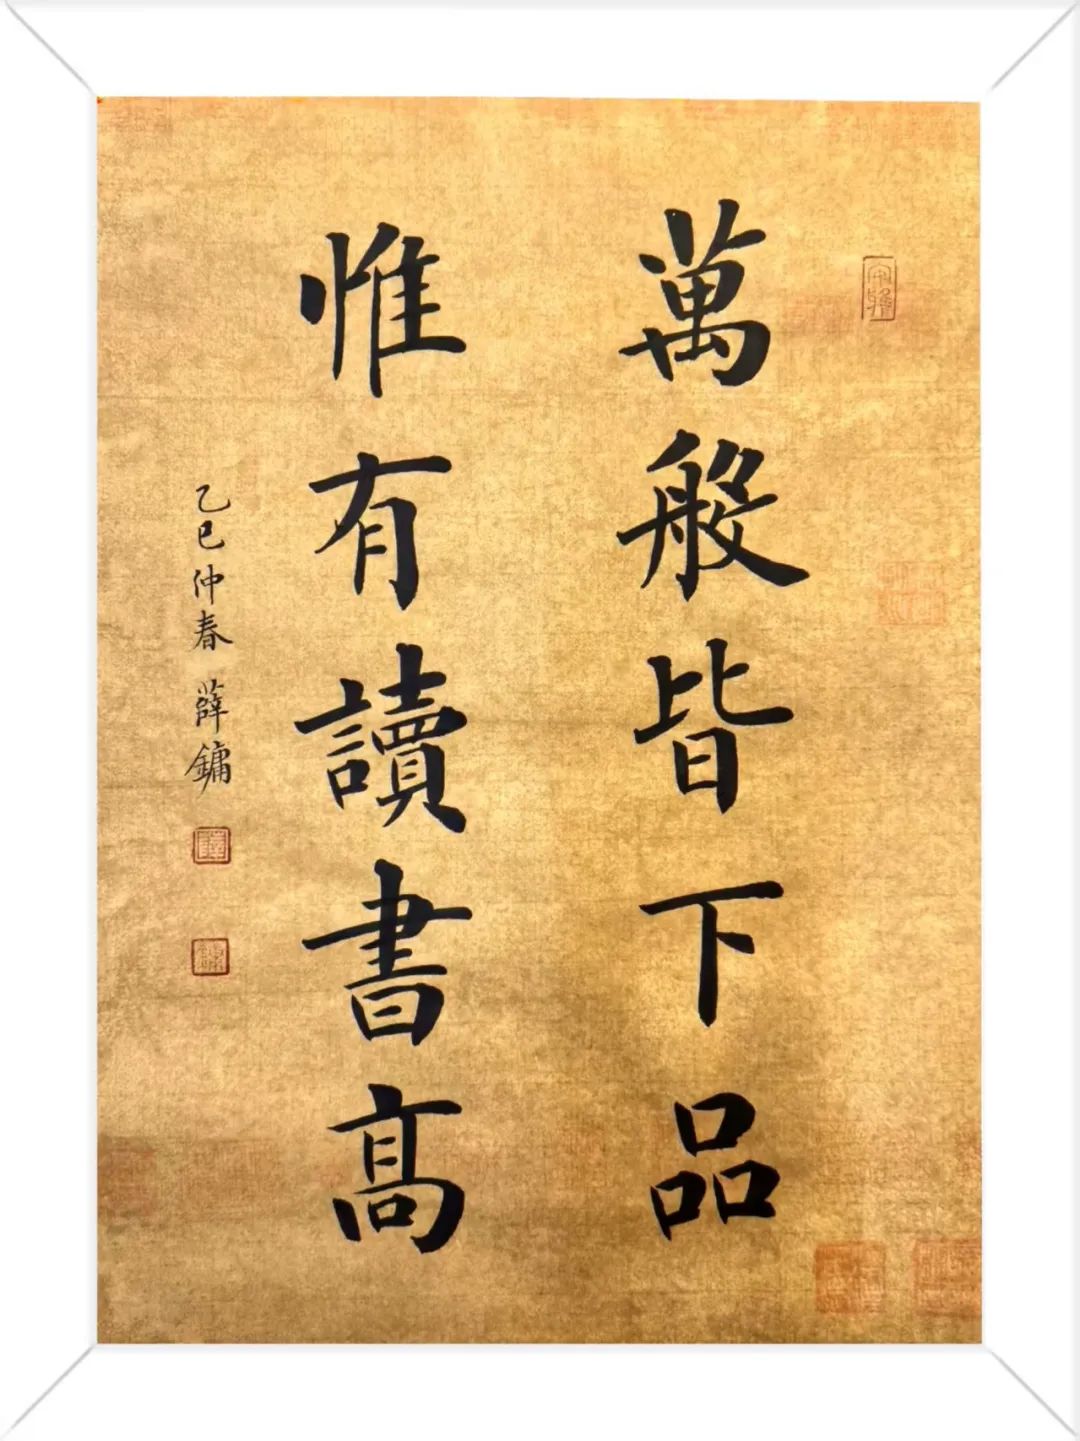 萬般皆下品
惟有讀書高
乙巳仲春 薛鏞